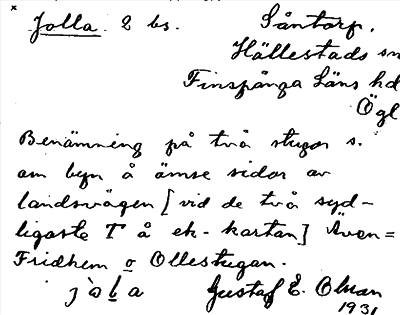 Jolla. 2 bs. Såntorp.
Hällestads sn
Finspånga Läns hd
Ögl
Benämning på två stugor s.
om byn å ömse sidor av
landsvägen [vid de två syd-
ligaste T å ek-kartan] Även =
Fridhem o Ollestugan.
Gustaf E. Olson
1931